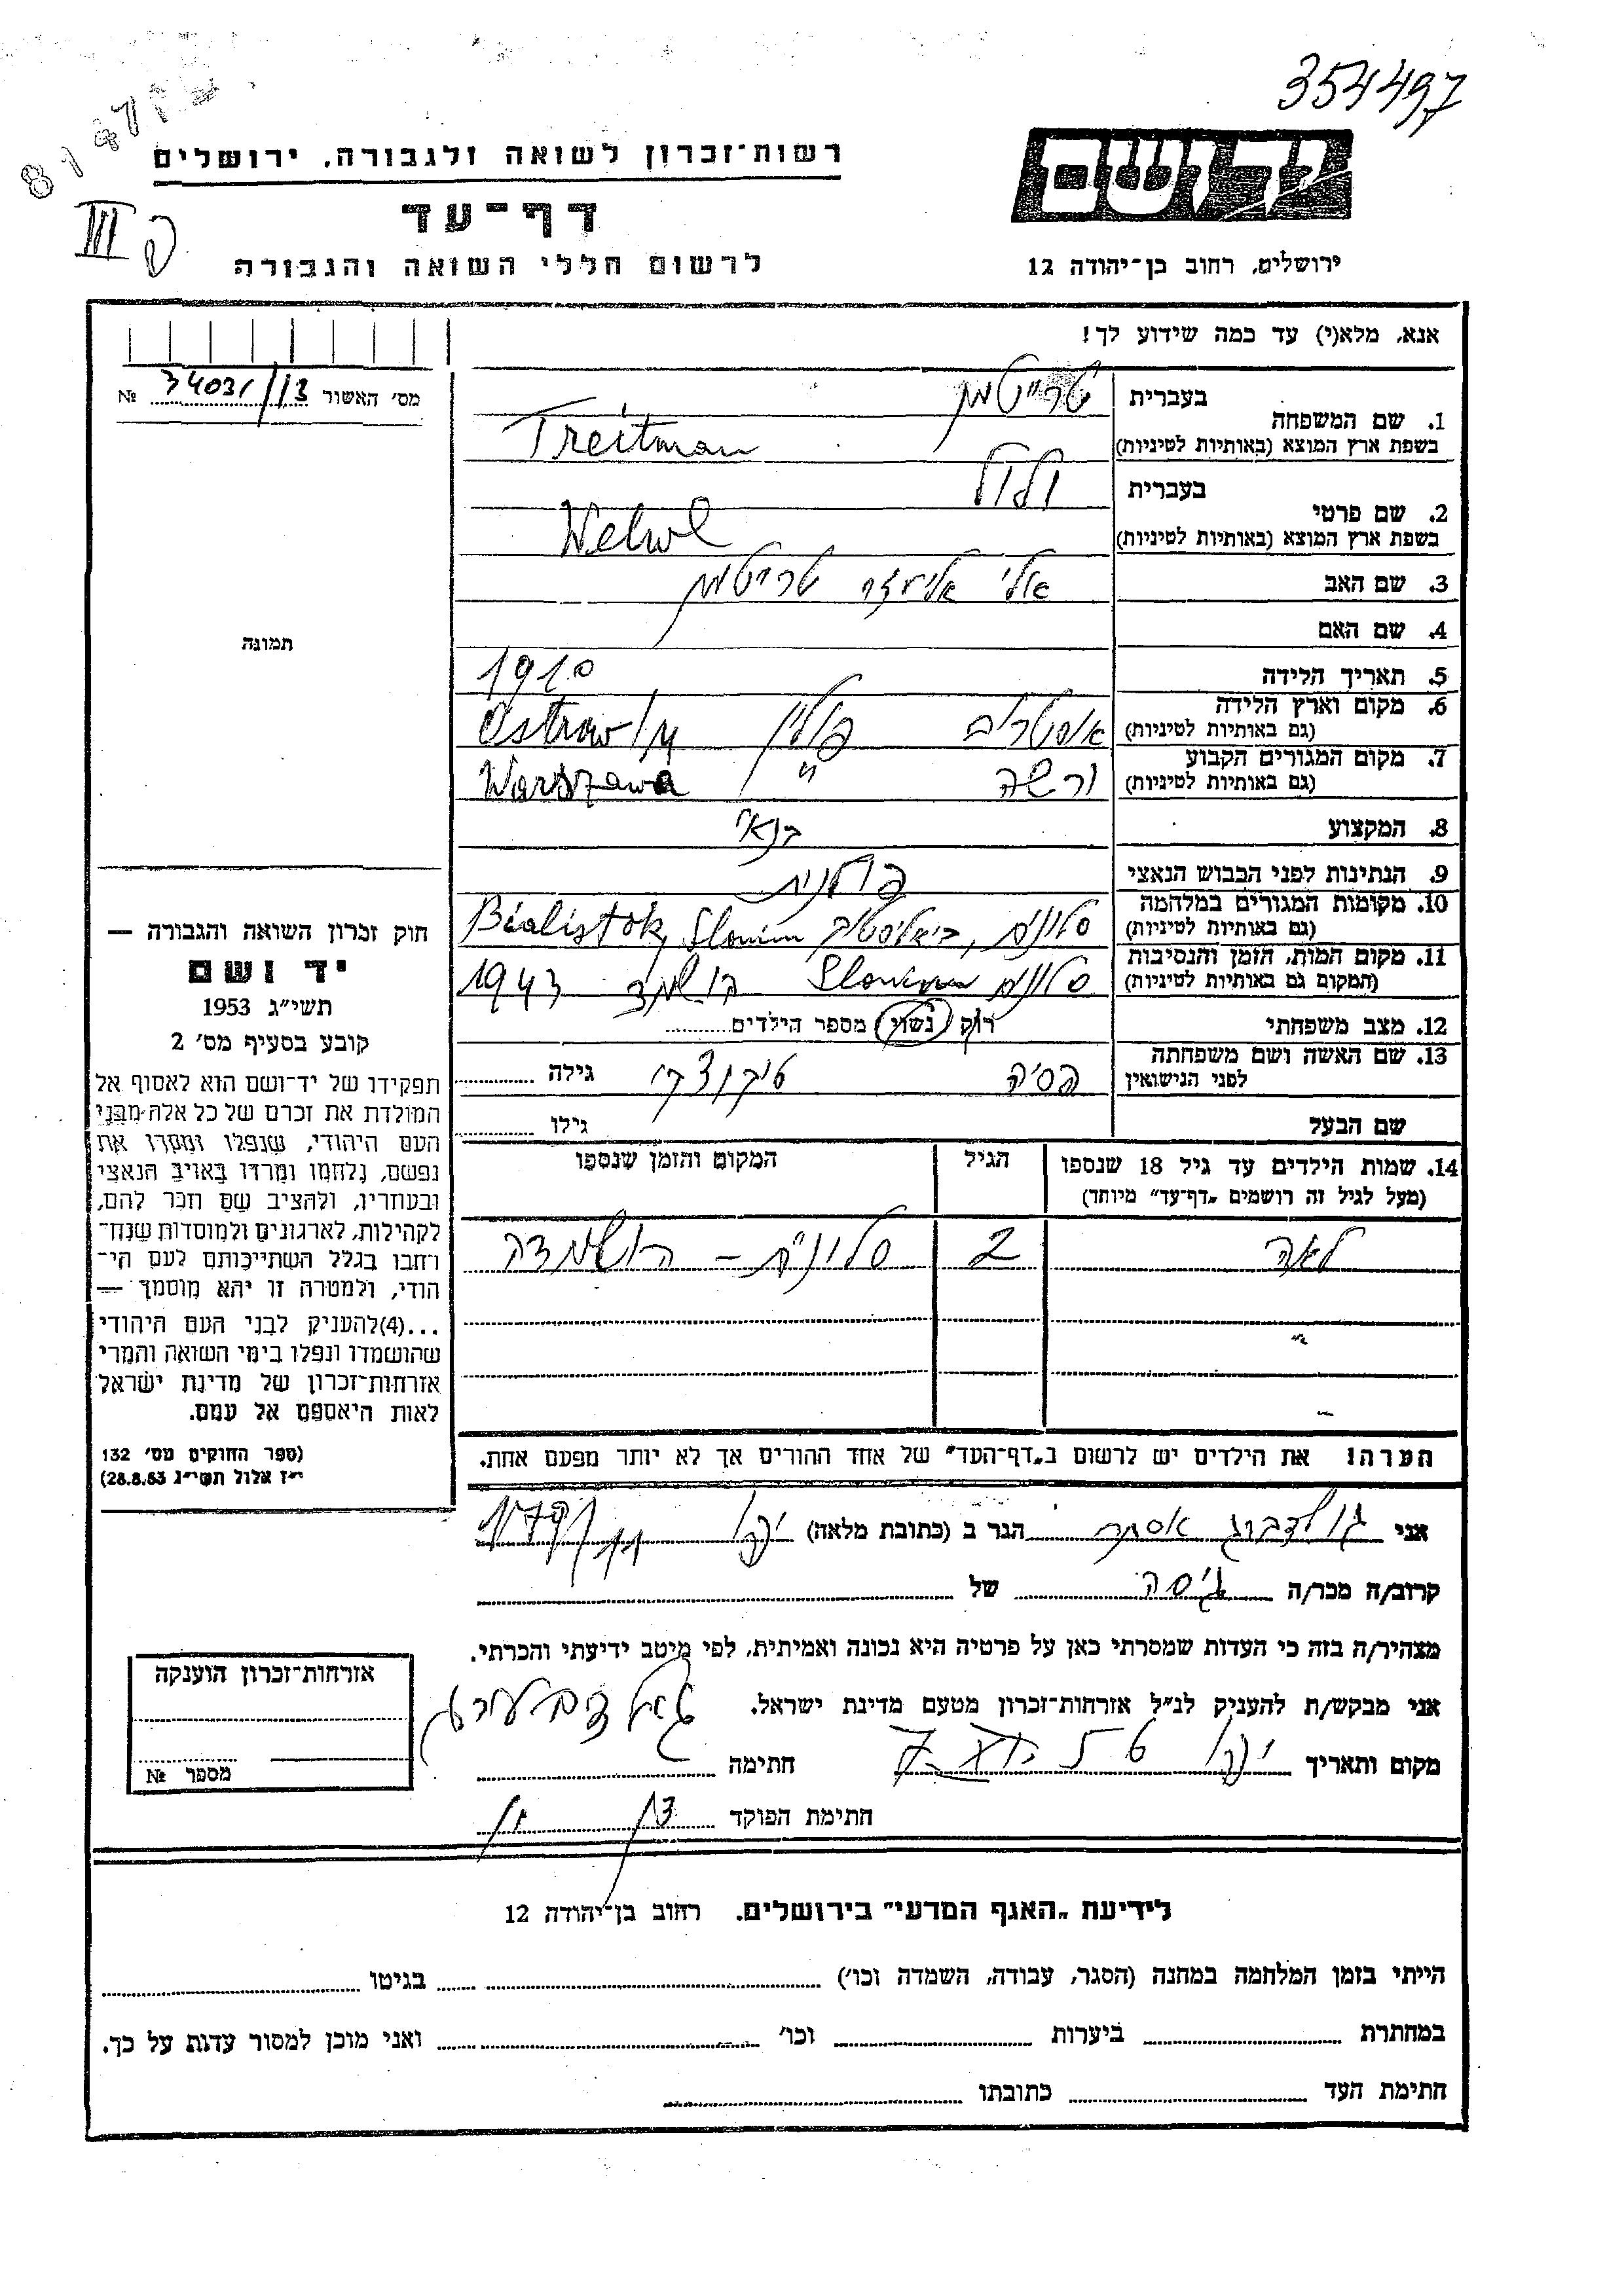 354497
81471
III
רשות־זכרון לשואה ולגבורה, ירושלים
ידושם
דף־עד
לרשום חללי השואה והגבורה
ירושלים, רחוב בן־יהודה 12
אנא, מלא(י) עד כמה שידוע לך!
מס׳ האשור 34031/13 №
1. שם המשפחה
בעברית טרייטמן
בשפת ארץ המוצא (באותיות לטיניות) Treitman
2. שם פרטי
בעברית ולול
בשפת ארץ המוצא (באותיות לטיניות) Welwl
3. שם האב אלי אליעזר טרייטמן
4. שם האם
5. תאריך הלידה 1910
6. מקום וארץ הלידה אוסטרוב פולין Ostrow /M
(גם באותיות לטיניות)
7. מקום המגורים הקבוע ורשה " Warszawa
(גם באותיות לטיניות)
8. המקצוע
9. הנתינות לפני הכבוש הנאצי פולנית
10. מקומות המגורים במלחמה סלונים, ביאליסטוק Slonim Bialistok,
(גם באותיות לטיניות)
11. מקום המות, הזמן והנסיבות סלונים Slonim הושמד 1943
(המקום גם באותיות לטיניות)
12. מצב משפחתי רוק נשוי מספר הילדים
13. שם האשה ושם משפחתה הסיה טיקוצקי גילה
לפני הנישואין
שם הבעל גילו
14. שמות הילדים עד גיל 18 שנספו הגיל המקום והזמן שנספו
(מעל לגיל זה רושמים „דף־עד״ מיוחד)
לאה 2 סלונים – הושמדה
הערה! את הילדים יש לרשום ב„דף־העד״ של אחד ההורים אך לא יותר מפעם אחת.
תמונה
חוק זכרון השואה והגבורה —
יד ושם
תשי״ג 1953
קובע בסעיף מס׳ 2
תפקידו של יד־ושם הוא לאסוף אל
המולדת את זכרם של כל אלה מבני
העם היהודי, שנפלו ומסרו את
נפשם, נלחמו ומרדו באויב הנאצי
ובעוזריו, ולהציב שם וזכר להם,
לקהילות, לארגונים ולמוסדות שנח־
רחבו בגלל השתייכותם לעם הי־
הודי, ולמטרה זו יהא מוסמך —
...(4)להעניק לבני העם היהודי
שהושמדו ונפלו בימי השואה והמרי
אזרחות־זכרון של מדינת ישראל
לאות היאספם אל עמם.
(ספר החוקים מס׳ 132
י״ז אלול תשי״ג 28.8.53)
אני גולדברג אסתר הגר ב (כתובת מלאה)
קרוב/ה מכר/ה גיסה של
מצהיר/ה בזה כי העדות שמסרתי כאן על פרטיה היא נכונה ואמיתית, לפי מיטב ידיעתי והכרתי.
אני מבקש/ת להעניק לנ״ל אזרחות־זכרון מטעם מדינת ישראל.
מקום ותאריך חתימה
חתימת הפוקד
אזרחות־זכרון הוענקה
מספר №
לידיעת „האגף המדעי״ בירושלים. רחוב בן־יהודה 12
הייתי בזמן המלחמה במחנה (הסגר, עבודה, השמדה וכו׳) בגיטו
במחתרת ביערות וכו׳ ואני מוכן למסור עדות על כך.
חתימת העד כתובתו